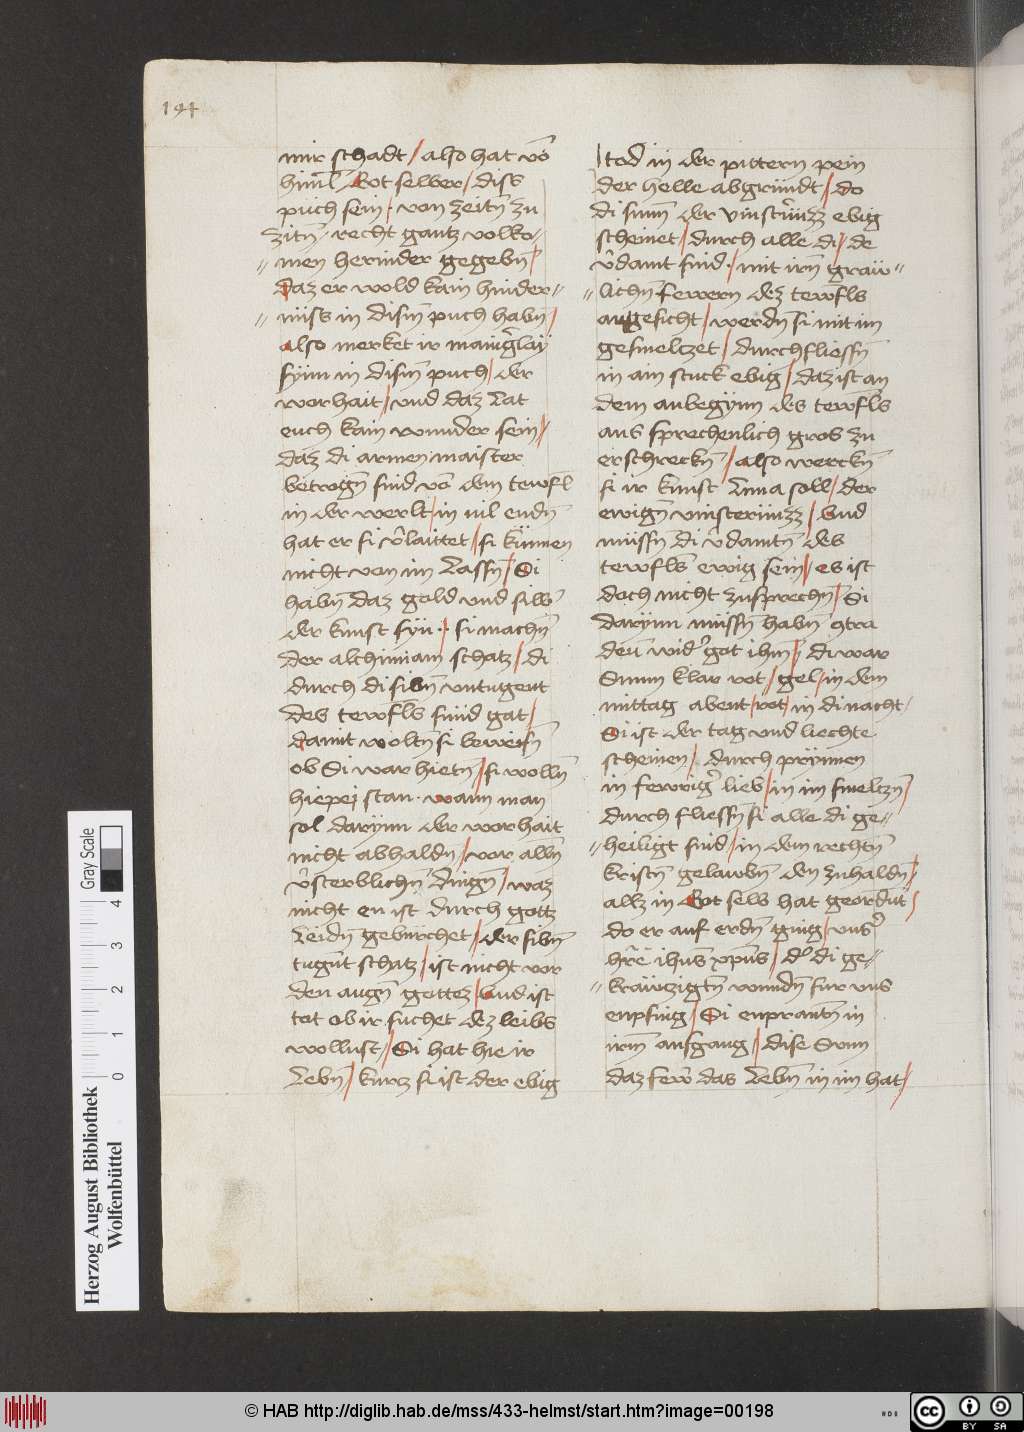 194
mir schadt / also hat vō
himl̄ Got selber / diss
púch sein / von zeitn̄ zu
zitn̄ / recht gantz volko=
= men herinder gegebn̄ /
daz er wold kain hinder=
= niss in dism̄ puch habn̄ /
also merket ir manig̾lay
synn in dism̄ puch / der
worhait / vnd daz Lat
euch kain wunder sein /
daz di armen maister
betrogn̄ sind vō dem tewfl
in der werlt / in vil endn̄
hat er si v̾laittet / si künnen
nicht von im Lassn̄ / Si
habn̄ daz gold vnd silb̾
der kunst syn / si machn̄
der alchimiam schatz / di
durch di sibn̄ vntugent
des tewfls sünd gat /
damit woltn̄ si beweisn̄
ob Si war hietn̄ / si wolln̄
hiepej stan · wann man
sol darynn der worhait
nicht abhaldn / vor alln̄
v̾sterblichn̄ dingn̄ / waz
nicht en ist durch gottz
Leidn̄ geburchet / der sibn̄
tugn̄t schatz / ist nicht vor
den augn̄ gottez / vnd ist
tot ob ir suchet dez leibs
wollust / Si hat hie ir
Lebn̄ / kurcz si ist der ebig
tod in der pittern pein
der helle abgründt / do
di sunn der vinst̾nüzz ebig
scheinet / durch alle di / de
v̾damt sind · / mit irn̄ gräw=
= lichn̄ fewern dez tewfls
angesicht / werdn̄ si mit im
gesmeltzet / durchfliessn̄
in ain stuck ebig / daz ist an
dem anbegynn des tewfls
aus sprechenlich gros zu
erschreckn̄ / also werckn̄
si ir kunst Luna soll / der
ewign̄ vinsternüzz / vnd
müssn̄ di v̾damtn̄ des
tewfls ewig sein / es ist
doch nicht zusprechn̄ / Si
darynn müssn̄ habn̄ 9tra
den̄ wid̾ got ihm̄ / di war
Sunn klar rot / gel / in dem
mittag abent / rot / in di nacht /
Si ist der tag vnd liechte
scheinen / durch prynnen
in fewrig̾ lieb / in im smelczn̄ /
durch fliessn̄ si alle di ge=
= heiligt sind / in dem rechtn̄
kristn̄ gelawbn̄ den zuhaldn̄ /
allz in Got selb hat geordn̄t /
do er auf erdn̄ ging / vns̾
hr̄e ih̄us xpūs / d̾ di ge=
= kräwzigtn̄ wundn̄ fur vns
enpfing / Si enprantn̄ in
irm̄ aufgang / dise Sunn
daz few̾ das Lebn̄ in im hat /
Gray Scale
0 1 2 3 4
Herzog August Bibliothek
Wolfenbüttel
© HAB http://diglib.hab.de/mss/433-helmst/start.htm?image=00198
cc BY SA